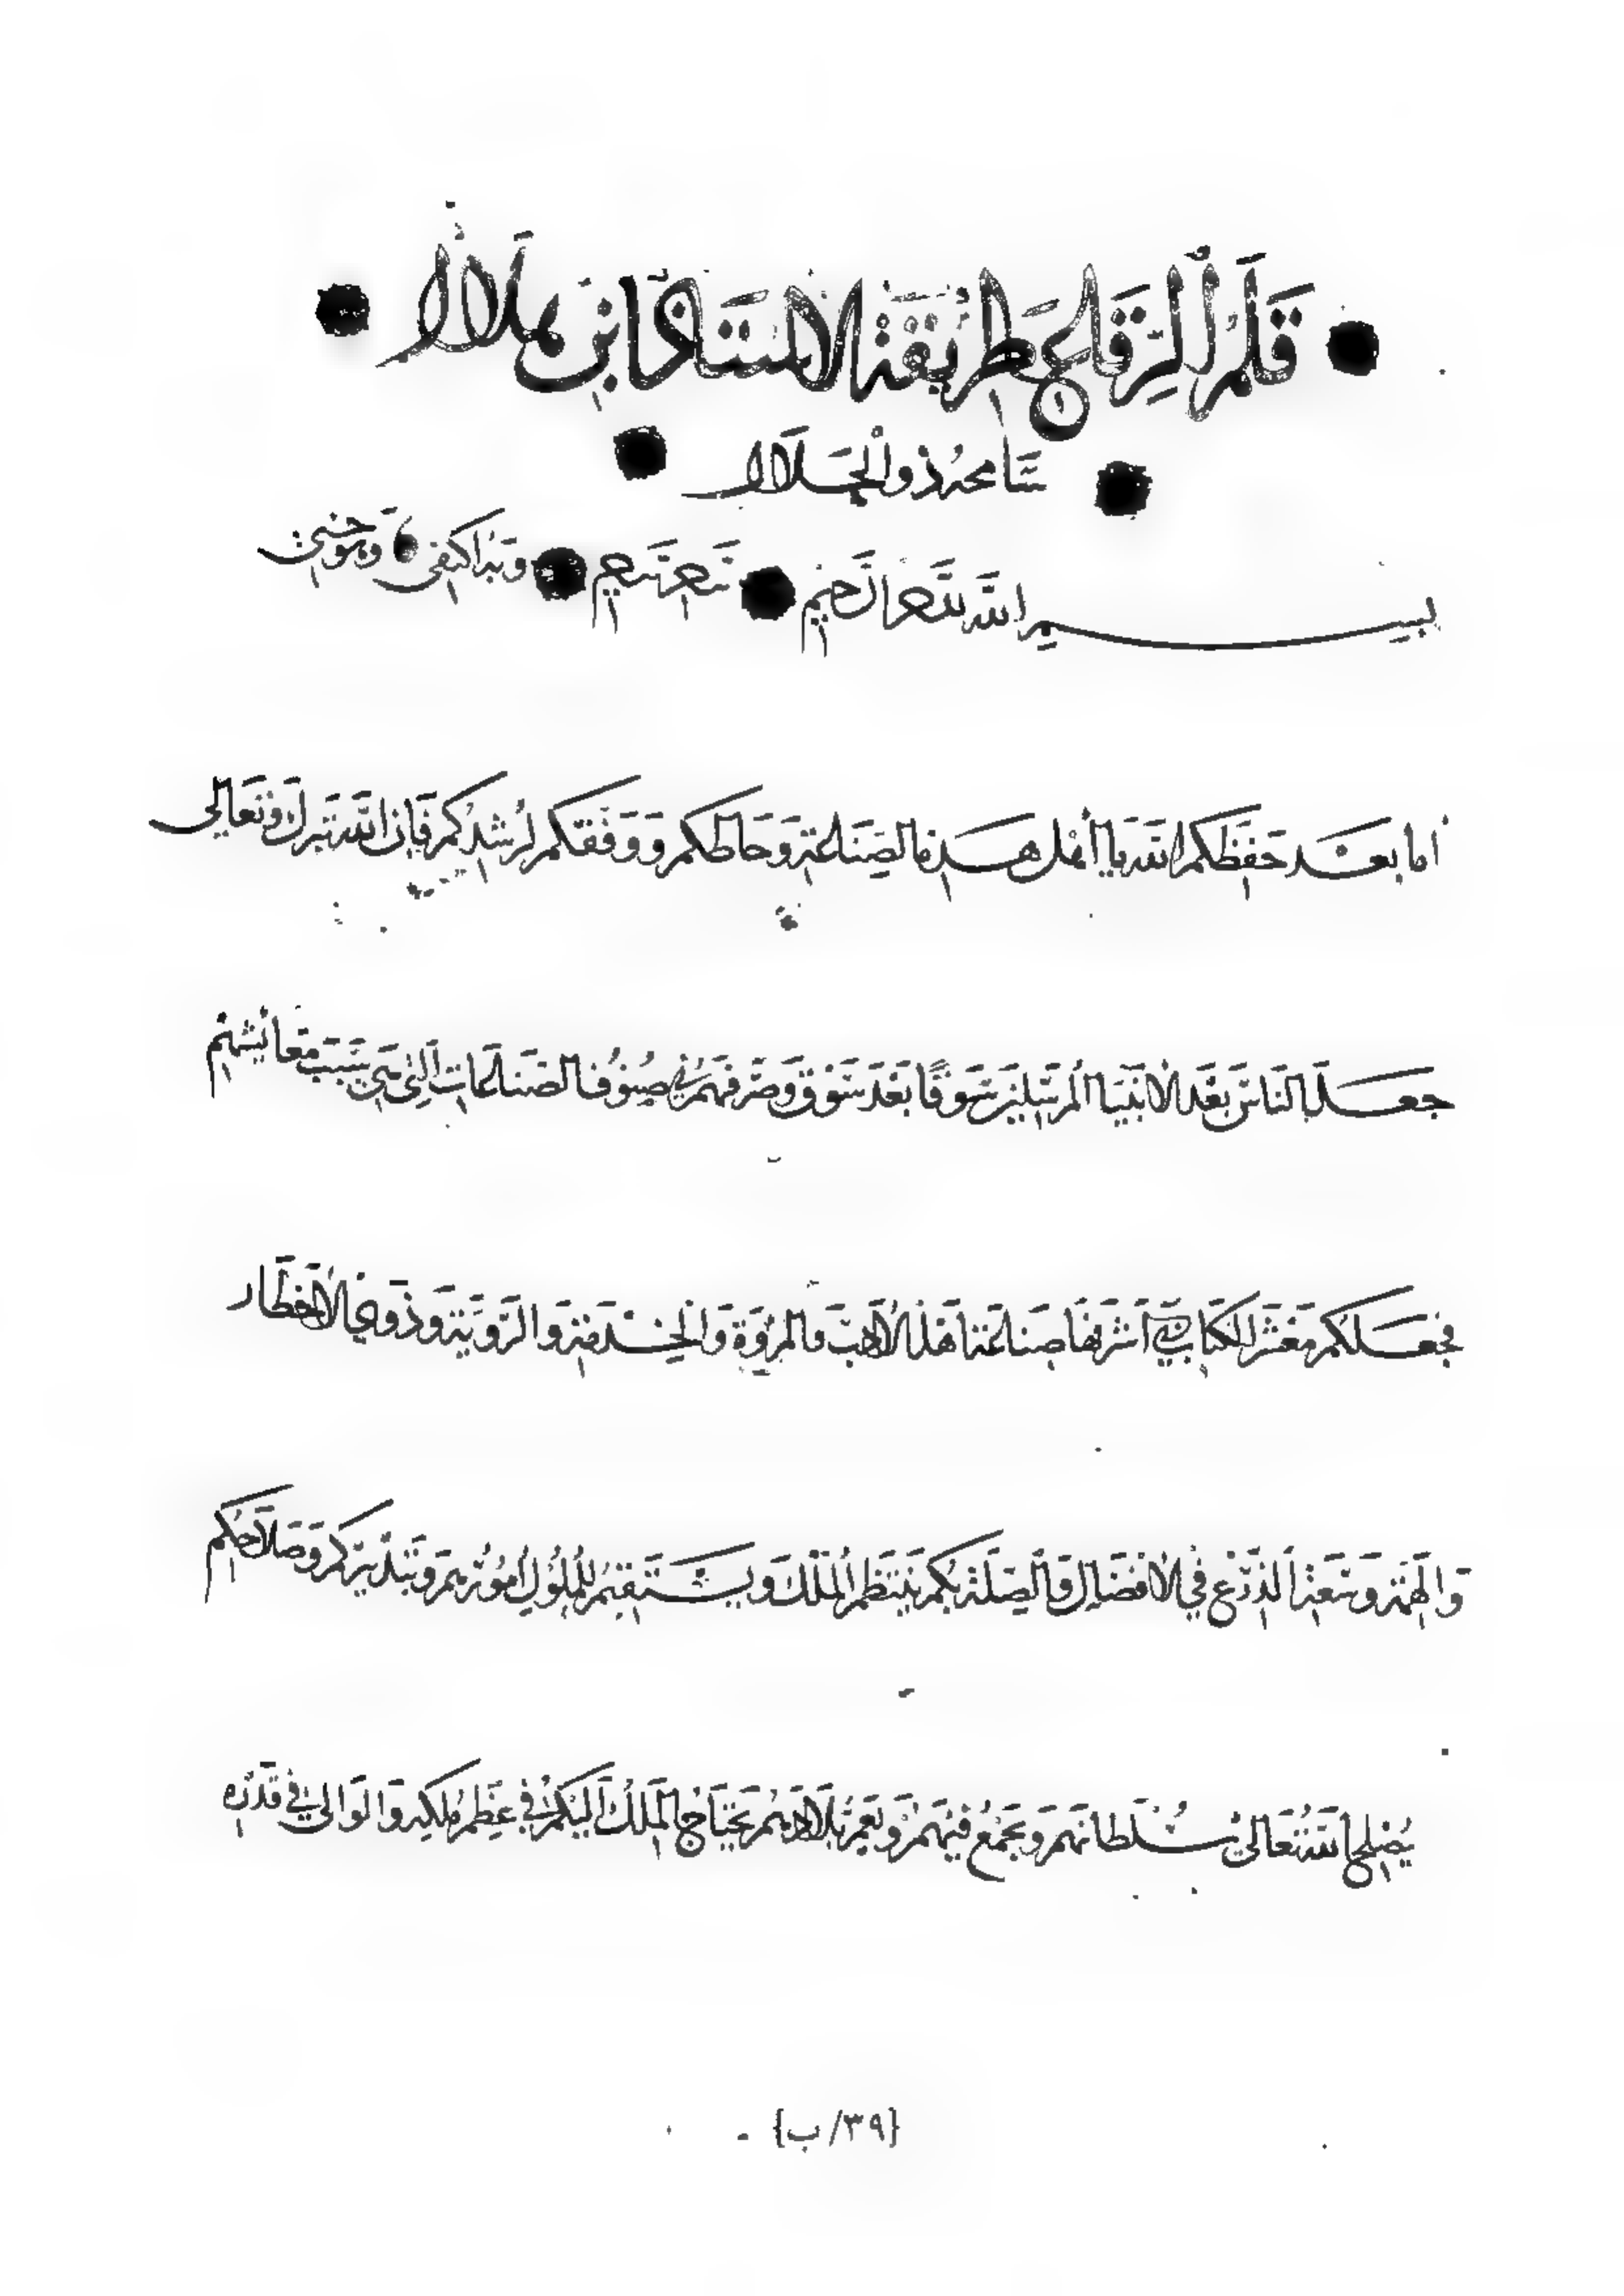 قَلَمُ الرِّقَاعِ عَلَى طَرِيقَةِ الاُسْتَاذِ ابْنِ هِلَال
سَامَحَهُ ذُو الْجَلَال
بسم الله الرحمن الرحيم وبه اكتفي وهو حسبي
أما بعد حفظكم الله يا أهل هذه الصناعة وحاطكم ووفقكم لرشدكم فإن الله تبرك وتعالى
جعل الناس بعد الأنبيا المرسلين سوقًا بعد سوق وصرفهم في صنوف الصناعات التي هي سبب معايشهم
فجعلكم معشر الكتاب في أشرفها صناعة أهل الأدب والمروة و والروية وذوي الأخطار
والهمة وسعة الذرع في الافضال والصلة بكم ينتظم الملك ويستقيم للملوك أمورهم وبتدبيركم وصلاحكم
يصلح الله تعالى سلطانهم ويجمع فيهم ويعمر بلادهم يحتاج الملك إليكم في عظم ملكه والوالي في قدره
{٣٩/ب}